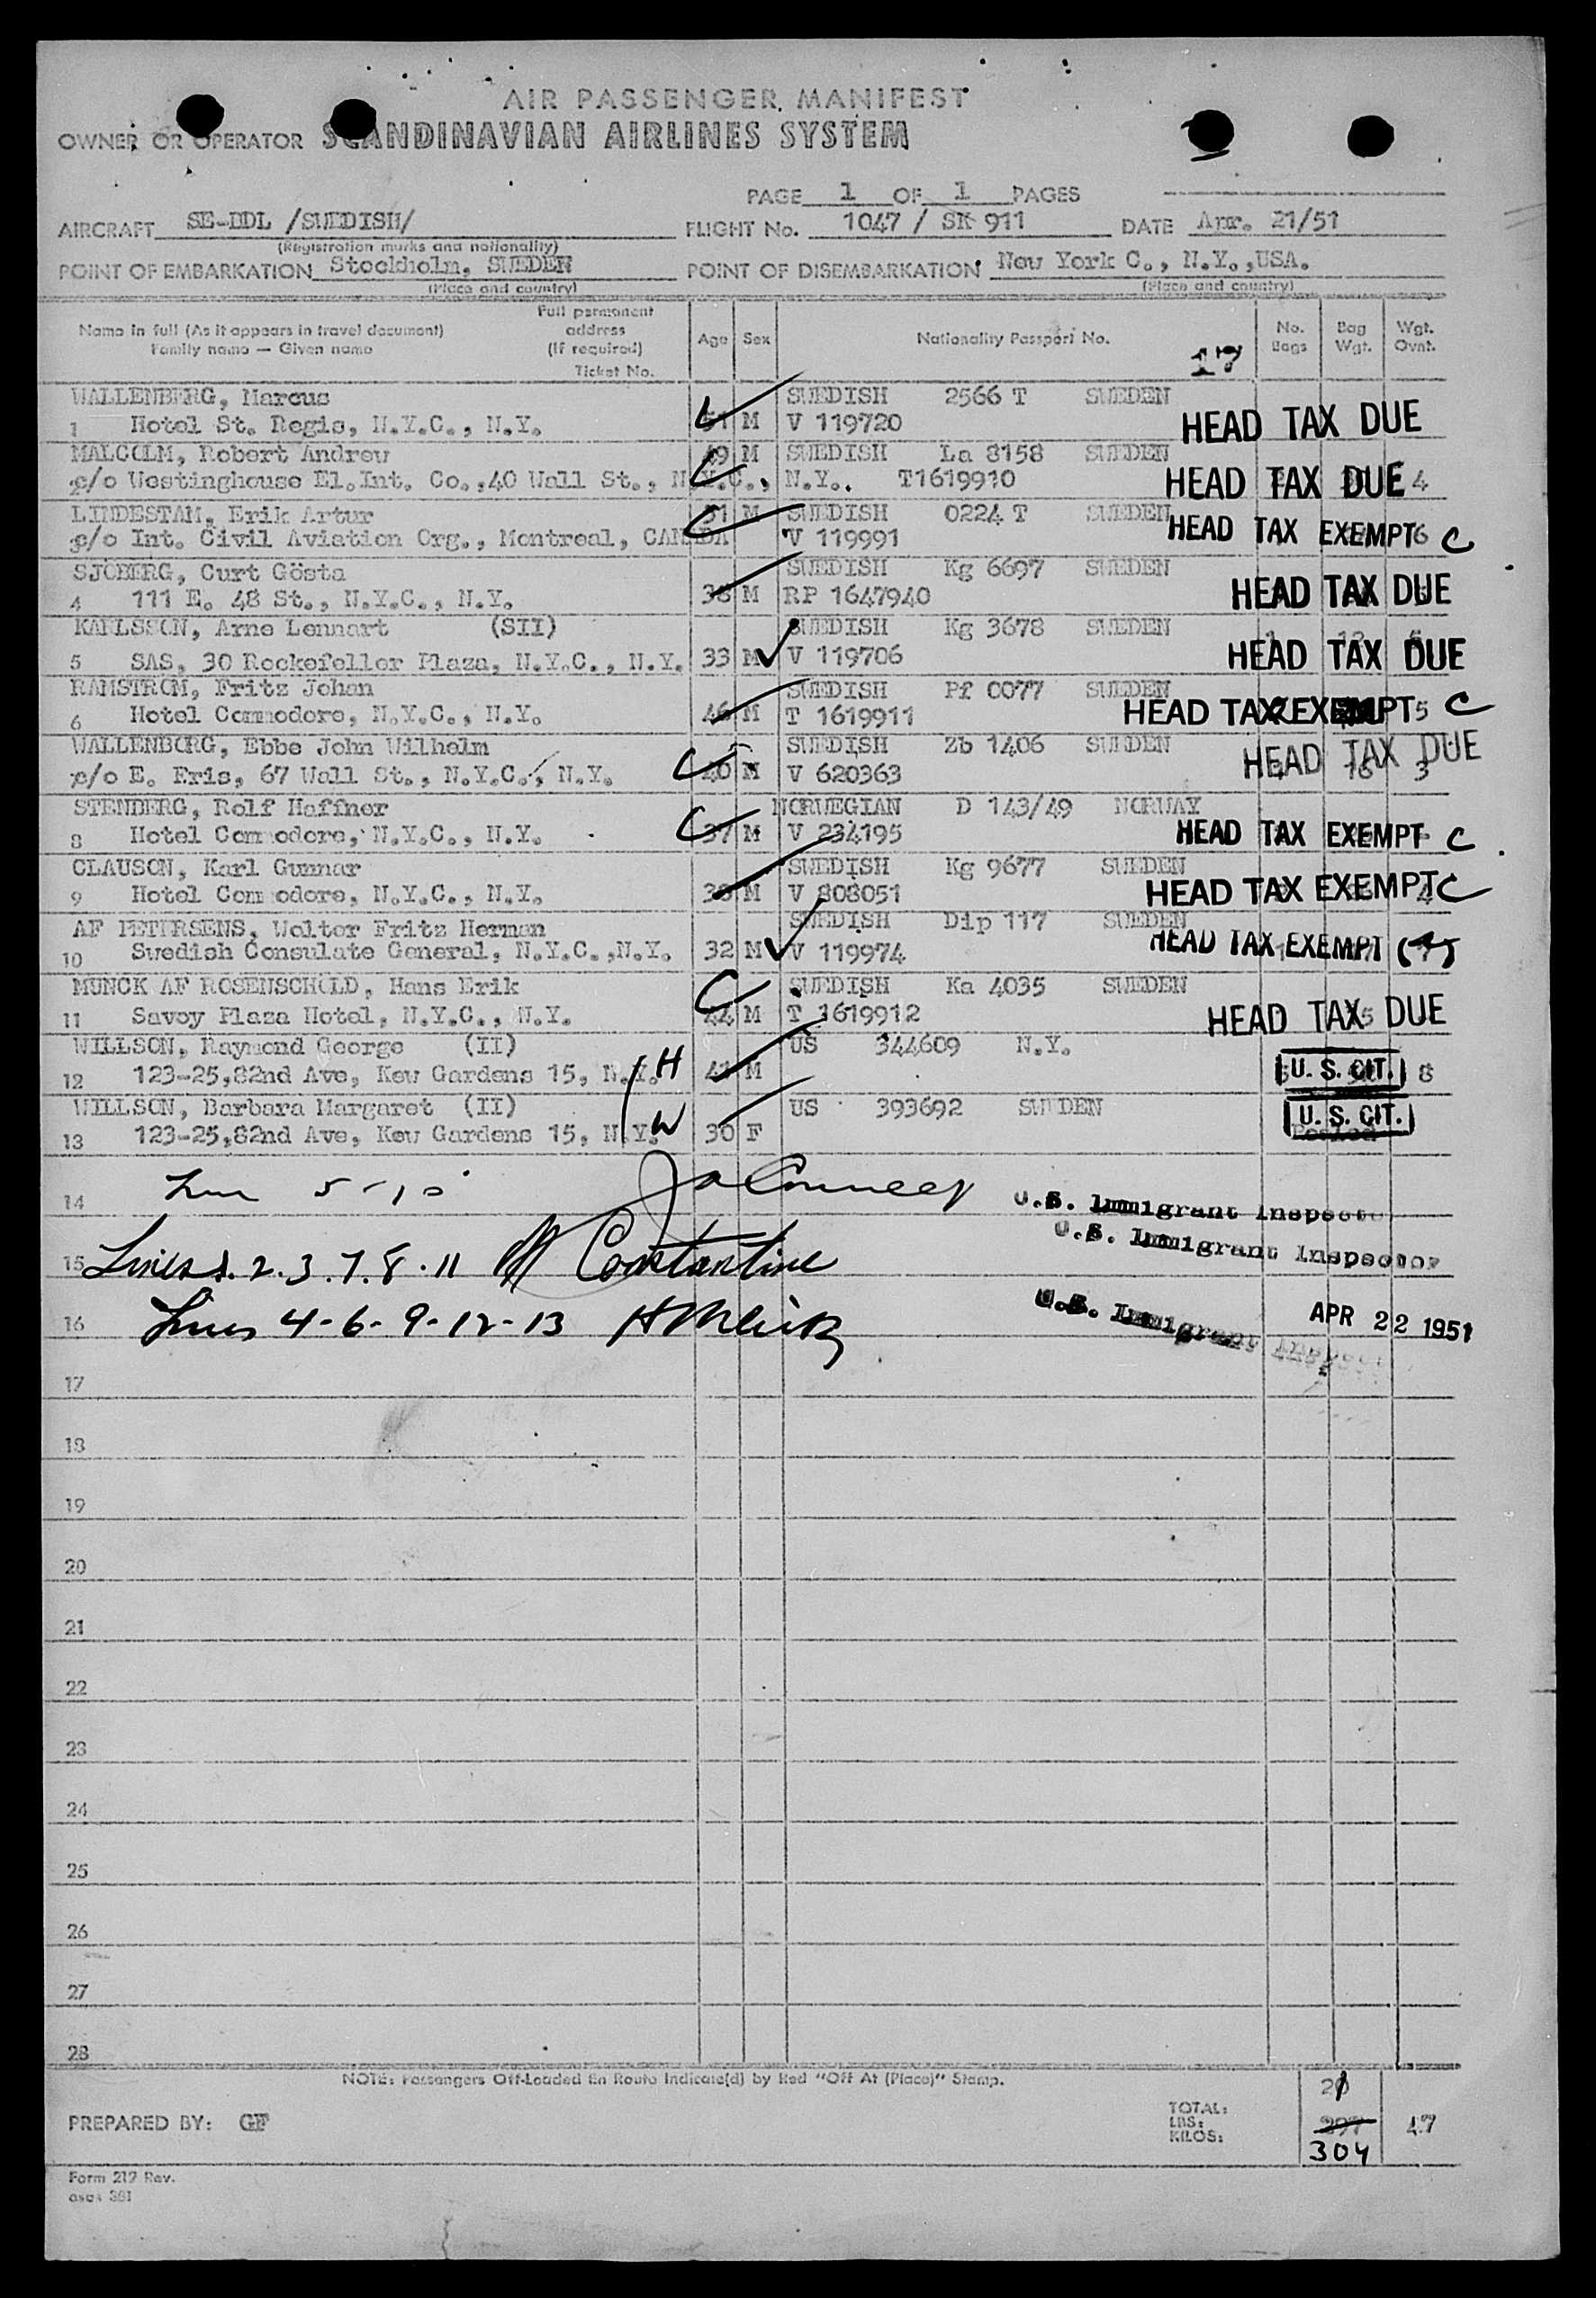 AIR PASSENGER MANIFEST
OWNER OR OPERATOR SCANDINAVIAN AIRLINES SYSTEM
PAGE 1 OF 1 PAGES
AIRCRAFT SE-BDL /SWEDISH/ FLIGHT No. 1047 / SK 911 DATE Apr. 21/51
(Registration marks and nationality)
POINT OF EMBARKATION Stockholm, SWEDEN POINT OF DISEMBARKATION New York C., N.Y.,USA.
(Place and country) (Place and country)
Name in full (As it appears in travel document) Family name — Given name Full permanent address (If required) Ticket No. Age Sex Nationality Passport No. 17 No. Bags Bag Wgt. Wgt. Ovnt.
WALLENBERG, Marcus SWEDISH 2566 T SWEDEN
1 Hotel St. Regis, N.Y.C., N.Y. 51 M V 119720 HEAD TAX DUE
MALCOLM, Robert Andrew 49 M SWEDISH La 8158 SWEDEN
c/o Westinghouse El.Int. Co.,40 Wall St., N.Y.C., N.Y. T1619910 HEAD TAX DUE 4
LINDESTAM, Erik Artur 51 M SWEDISH 0224 T SWEDEN
c/o Int. Civil Aviation Org., Montreal, CANADA V 119991 HEAD TAX EXEMPT 6 C
SJOBERG, Curt Gösta SWEDISH Kg 6697 SWEDEN
4 111 E. 48 St., N.Y.C., N.Y. 38 M RP 1647940 HEAD TAX DUE
KARLSSON, Arne Lennart (SII) SWEDISH Kg 3678 SWEDEN
5 SAS, 30 Rockefeller Plaza, N.Y.C., N.Y. 33 M V 119706 HEAD TAX DUE
RAMSTROM, Fritz Johan SWEDISH Pf 0077 SWEDEN
6 Hotel Commodore, N.Y.C., N.Y. 46 M T 1619911 HEAD TAX EXEMPT 5 C
WALLENBORG, Ebbe John Wilhelm SWEDISH Zb 1406 SWEDEN
c/o E. Eris, 67 Wall St., N.Y.C., N.Y. 40 M V 620363 HEAD TAX DUE 16 3
STENBERG, Rolf Haffner NORWEGIAN D 143/49 NORWAY
8 Hotel Commodore, N.Y.C., N.Y. 37 M V 234195 HEAD TAX EXEMPT C
CLAUSON, Karl Gunnar SWEDISH Kg 9677 SWEDEN
9 Hotel Commodore, N.Y.C., N.Y. 38 M V 808051 HEAD TAX EXEMPT C
AF PETERSENS, Wolter Fritz Herman SWEDISH Dip 117 SWEDEN
10 Swedish Consulate General, N.Y.C.,N.Y. 32 M V 119974 HEAD TAX EXEMPT
MUNCK AF ROSENSCHOLD, Hans Erik SWEDISH Ka 4035 SWEDEN
11 Savoy Plaza Hotel, N.Y.C., N.Y. 44 M T 1619912 HEAD TAX DUE
WILLSON, Raymond George (II) US 344609 N.Y.
12 123-25,82nd Ave, Kew Gardens 15, N.Y. H M U. S. CIT. 8
WILLSON, Barbara Margaret (II) US 393692 SWEDEN
13 123-25,82nd Ave, Kew Gardens 15, N.Y. W 30 F U. S. CIT.
14 Line 5-10 U.S. Immigrant Inspector
U.S. Immigrant Inspector
15 Lines 1.2.3.7.8.11 Constantine
16 Lines 4-6-9-12-13 U.S. Immigrant APR 22 1951
17
18
19
20
21
22
23
24
25
26
27
28
NOTE: Passengers Off-Loaded En Route Indicate(d) by Red "Off At (Place)" Stamp.
PREPARED BY: GF TOTAL: LBS: KILOS: 297 304 47
Form 217 Rev.